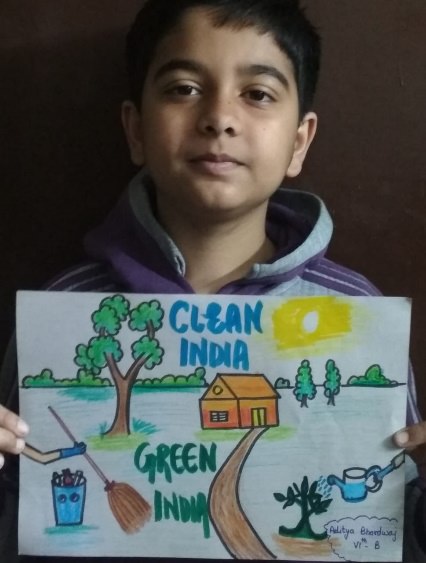 CLEAN
INDIA
GREEN
INDIA
Aditya Bhardwaj
VIth - B